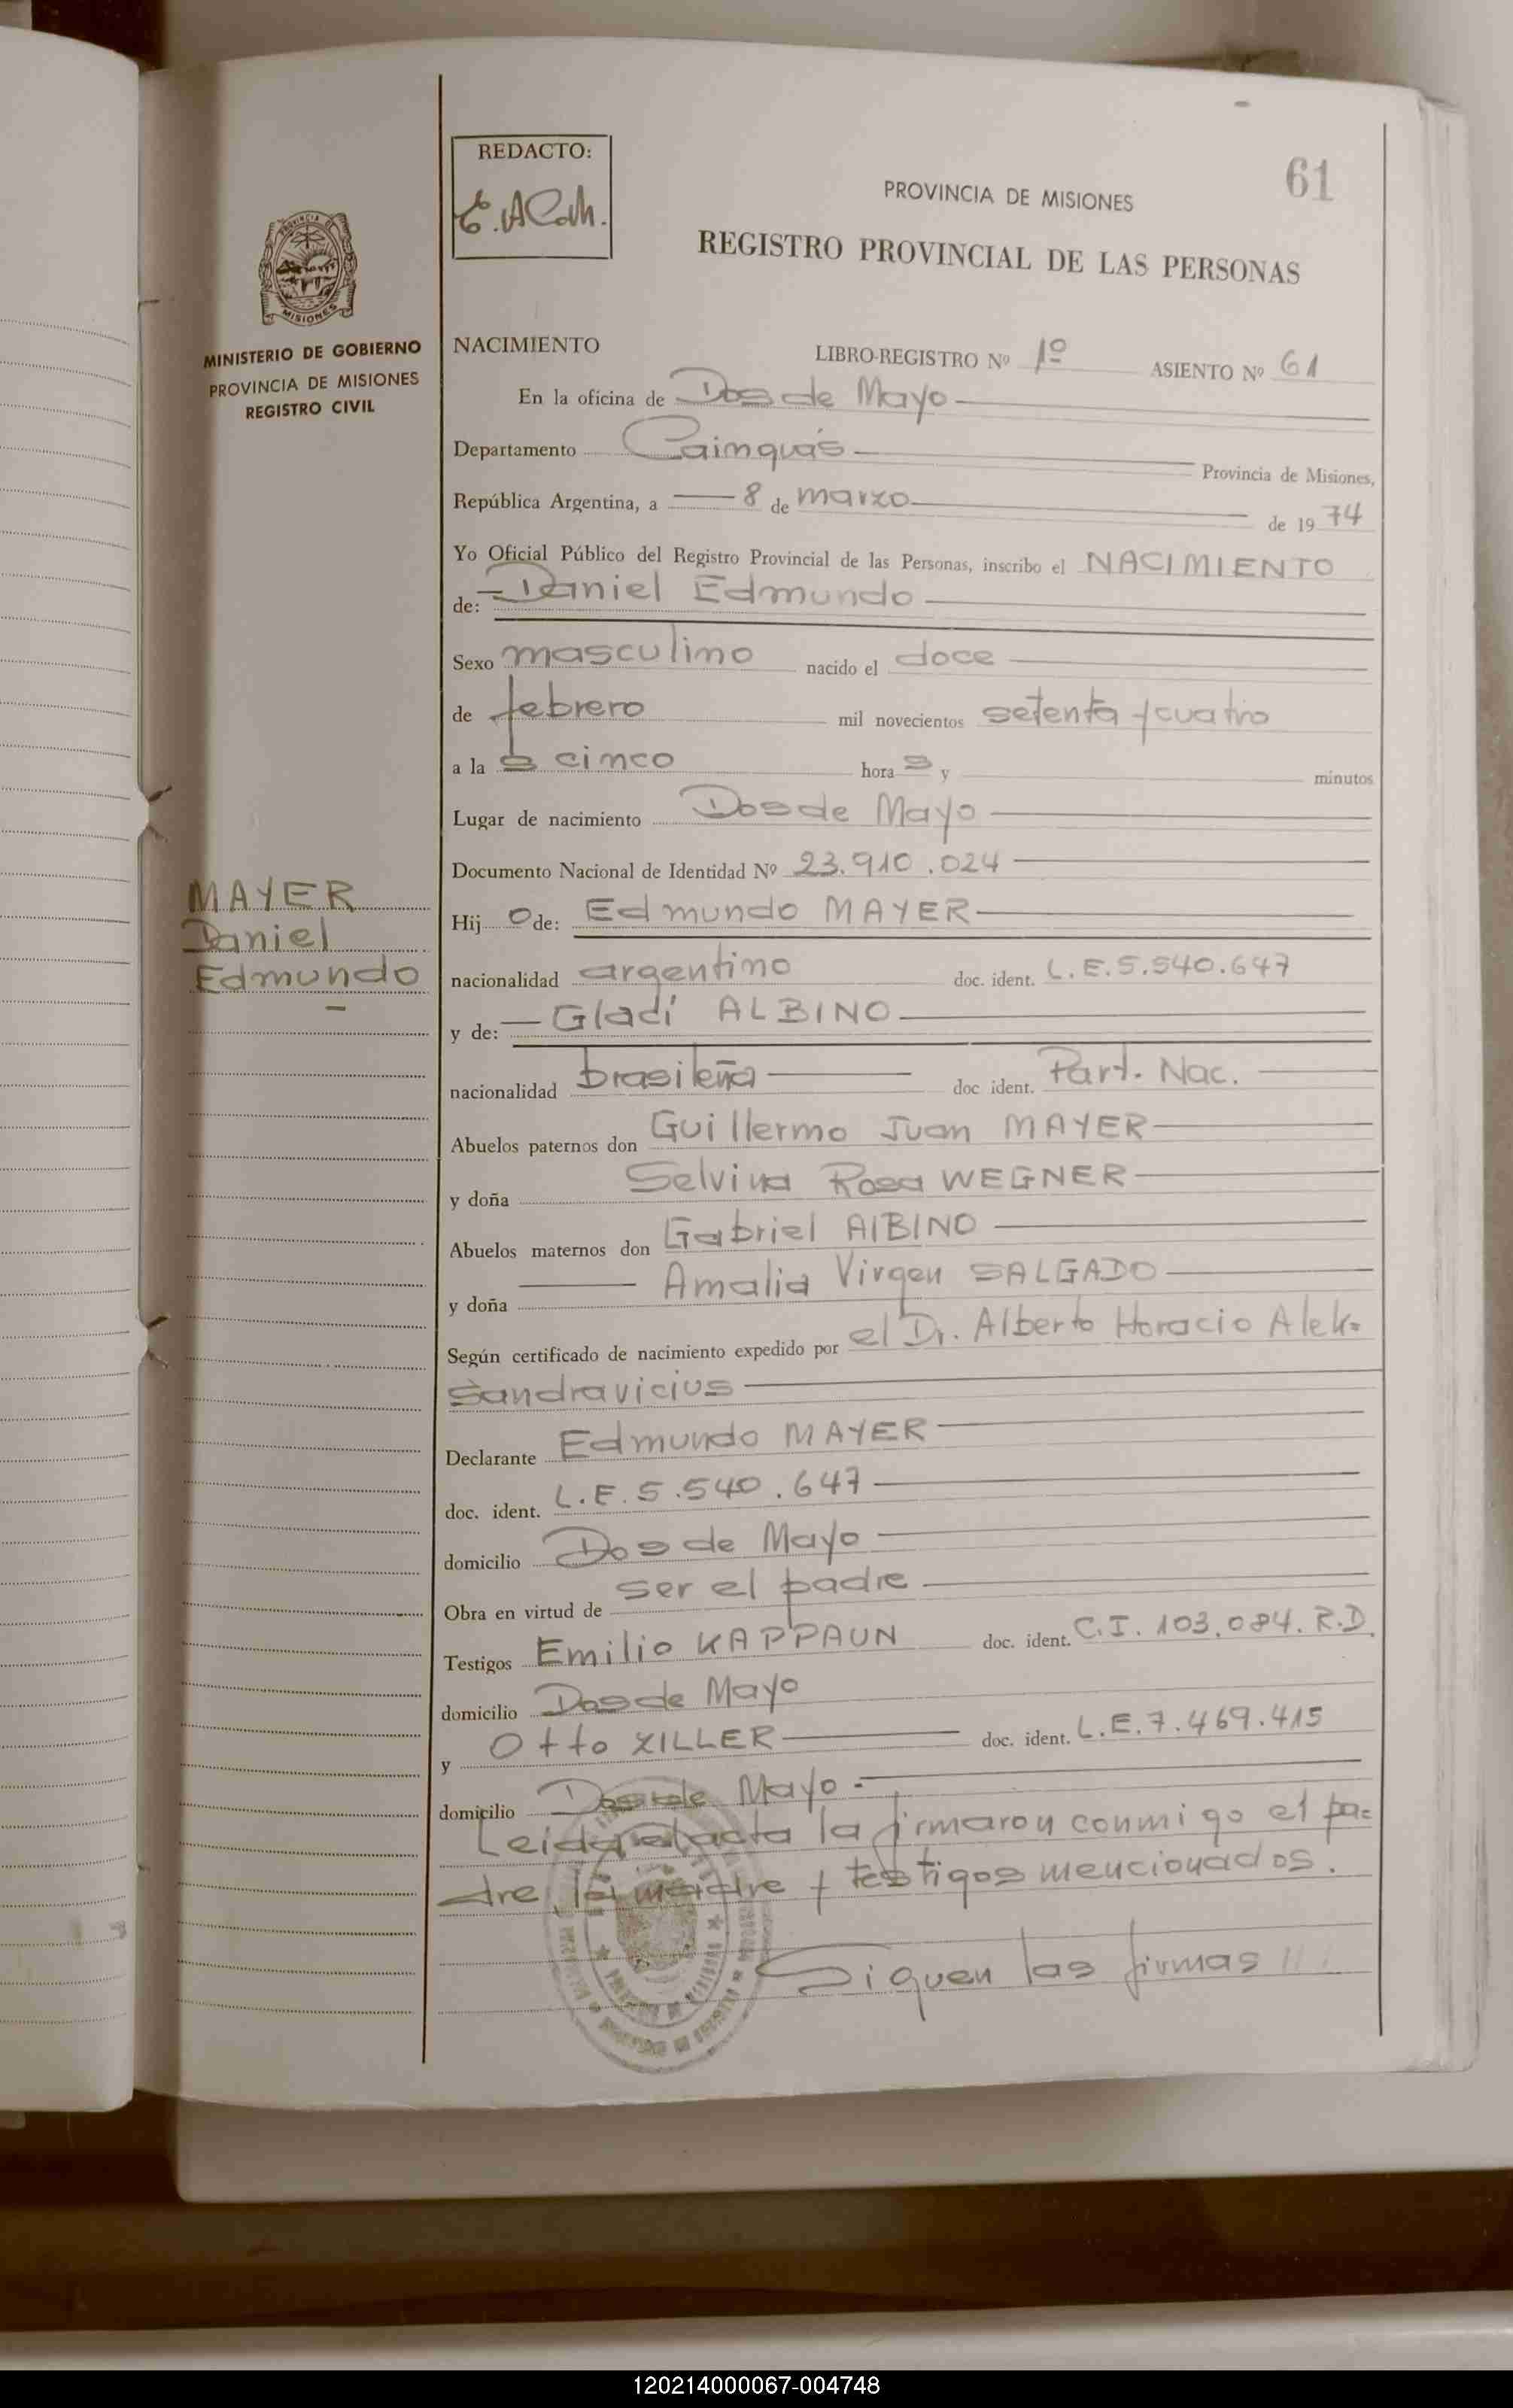 REDACTO:
61
PROVINCIA DE MISIONES
REGISTRO PROVINCIAL DE LAS PERSONAS
MISIONES
MINISTERIO DE GOBIERNO
PROVINCIA DE MISIONES
REGISTRO CIVIL
NACIMIENTO LIBRO-REGISTRO Nº 1º ASIENTO Nº 61
En la oficina de Dos de Mayo
Departamento Cainguás Provincia de Misiones,
República Argentina, a 8 de marzo de 1974
Yo Oficial Público del Registro Provincial de las Personas, inscribo el NACIMIENTO
de: Daniel Edmundo
Sexo masculino nacido el doce
de febrero mil novecientos setenta y cuatro
a las cinco horas y minutos
Lugar de nacimiento Dos de Mayo
Documento Nacional de Identidad Nº 23.910.024
MAYER
Daniel
Edmundo
Hijo de: Edmundo MAYER
nacionalidad argentino doc. ident. L.E.5.540.647
y de: Gladi ALBINO
nacionalidad brasileña doc ident. Part. Nac.
Abuelos paternos don Guillermo Juan MAYER
y doña Selvina Rosa WEGNER
Abuelos maternos don Gabriel AlBINO
y doña Amalia Virgen SALGADO
Según certificado de nacimiento expedido por el Dr. Alberto Horacio Alek=
sandravicius
Declarante Edmundo MAYER
doc. ident. L.E.5.540.647
domicilio Dos de Mayo
Obra en virtud de ser el padre
Testigos Emilio KAPPAUN doc. ident. C.I. 103.084. R.D.
domicilio Dos de Mayo
y Otto XILLER doc. ident. L.E.7.469.415
domicilio Dos de Mayo.=
Leida el acta la firmaron conmigo el pa=
dre, la madre y testigos mencionados.
Siguen las firmas //
120214000067-004748